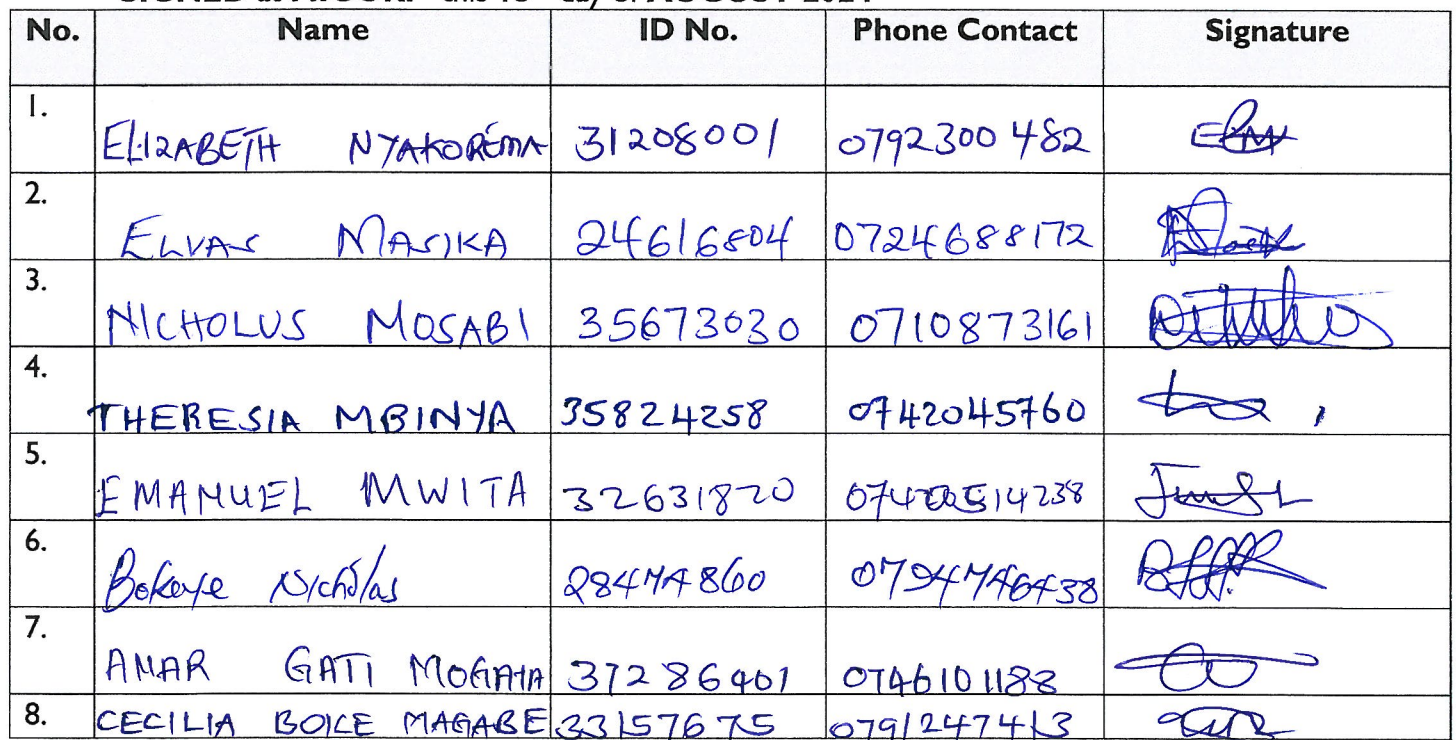 No. Name ID No. Phone Contact Signature
1. ELIZABETH NYAKOREMA 31208001 0792300482
2. ELVAS MASIKA 24616804 0724688172
3. NICHOLUS MOSABI 35673030 0710873161
4. THERESIA MBINYA 35824258 0742045760
5. EMANUEL MWITA 32631820
6. Bokeye Nicholas 28474860
7. AMAR GATI MOGAIA 37286401 0746101188
8. CECILIA BOKE MAGABE 33157675 0791247413